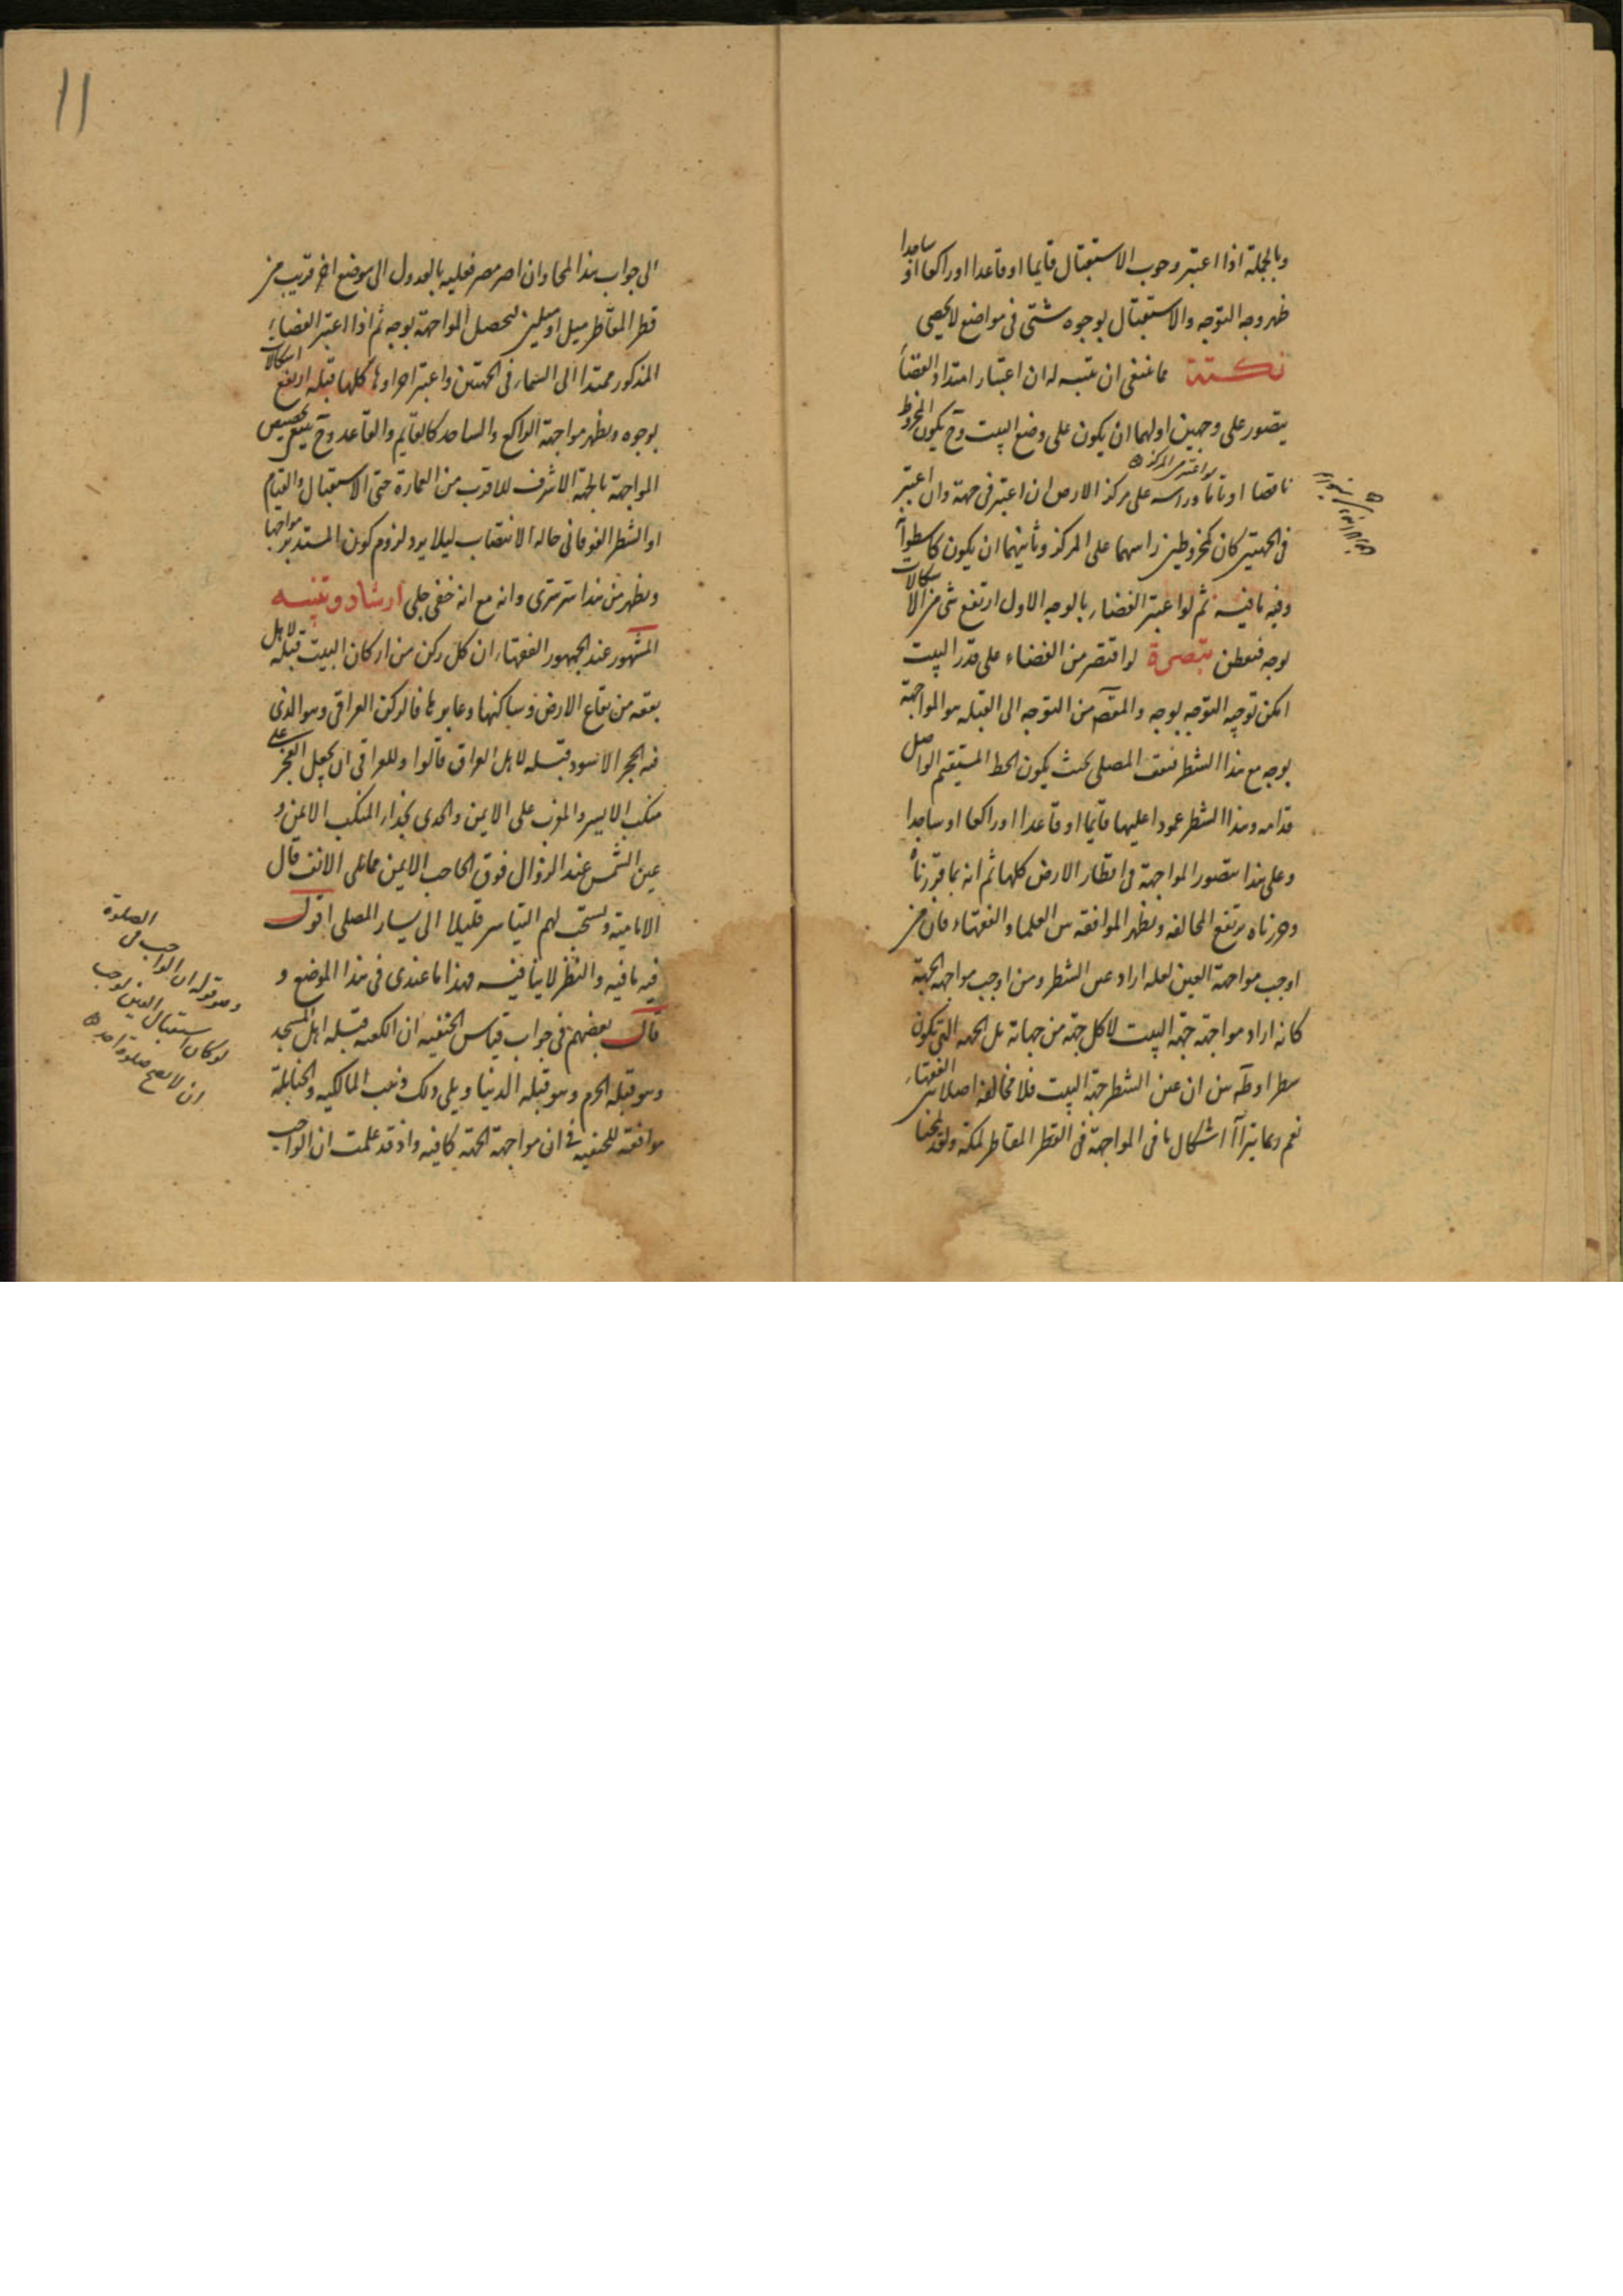 وبالجملة اذا اعتبر وجوب الاستقبال قايما او قاعدا او راكعا او ساجدا
ظهر وجه التوجه والاستقبال بوجوه شتى فى مواضع لا يحصى
نكتة مما ينبغى ان ينبه له ان اعتبار امتداد الفضاء
يتصور على وجهين اولهما ان يكون على وضع البيت وح يكون المخروط
ناقصا او تاما وراسه على مركز الارض ان اعتبر فى جهة وان اعتبر
فى الجهتين كان كمخروطين راسهما على المركز وثانيهما ان يكون كاسطوانة
وفيه ما فيه ثم لو اعتبر الفضاء بالوجه الاول ارتفع شى من الاشكالات
بوجه فتفطن تبصرة لو اقتصر من الفضاء على قدر البيت
امكن توجيه التوجه بوجه والمقصود من التوجه الى القبلة هو المواجهة
بوجه مع هذا الشطر فيقف المصلى بحيث يكون الخط المستقيم الواصل
قدامه وهذا الشطر عمودا عليها قايما او قاعدا او راكعا او ساجدا
وعلى هذا يتصور المواجهة فى اقطار الارض كلها ثم انه بما قررناه
وحررناه يرتفع المخالفه ويظهر الموافقه بين العلما والفقهاء فان من
اوجب مواجهة العين لعله اراد عين الشطر ومن اوجب مواجهة الجهة
كانه اراد مواجهة جهة البيت لا كل جهة من جهاته بل الجهه التى يكون
شطرا وظ من ان عين الشطر جهة البيت فلا مخالفه اصلا بين الفقهاء
نعم ربما يترااا اشكال ما فى المواجهة فى القطر المقاطر لمكة ولقد لمحنا
الى جواب هذا المحا وان اصر مصر فعليه بالعدول الى موضع اخر قريب من
قطر المقاطر ميل او ميلين ليحصل المواجهة بوجه ثم اذا اعتبر الفضاء
المذكور ممتدا الى السماء فى الجهتين واعتبر اجزاوها كلها قبله ارتفع اشكالات
بوجوه ويظهر مواجهة الراكع والساجد كالقايم والقاعد وح ينبغى تخصيص
المواجهة بالجهة الاشرف للاقرب من العمارة حتى الاستقبال والقيام
او الشطر الفوقانى حاله الانتصاب ليلا يرد لزوم كون المستدبر مواجها
ويظهر من هذا سر سرى وانه مع انه خفى جلى ارشاد وتنبيه
المشهور عند الجمهور الفقهاء ان كل ركن من اركان البيت قبلة لاهل
بقعه من بقاع الارض وساكنها وعابرها فالركن العراقى وهو الذى
فيه الحجر الاسود قبله لاهل العراق قالوا وللعراقى ان يجعل الفجر على
منكب الايسر والمغرب على الايمن والجدى بحذاء المنكب الايمن و
عين الشمس عند الزوال فوق الحاجب الايمن مما على الانف قال
الامامية ويستحب لهم التياسر قليلا الى يسار المصلى اقول
فيه ما فيه والنظر لا ينافيه فهذا ما عندى فى هذا الموضع و
قال بعضهم فى جواب قياس الحنفيه ان الكعبه قبله اهل المسجد
وهو قبله الحرم وهو قبله الدنيا ويلى ذلك ذهب المالكيه والحنابلة
موافقه للحنفيه فى ان مواجهة الجهة كافيه واذ قد علمت ان الواجب
لو اعتبر من المركز
وهو قوله ان الواجب فى الصلوة
لو كان استقبال العين لوجب
ان لا يصح صلوة احد
11